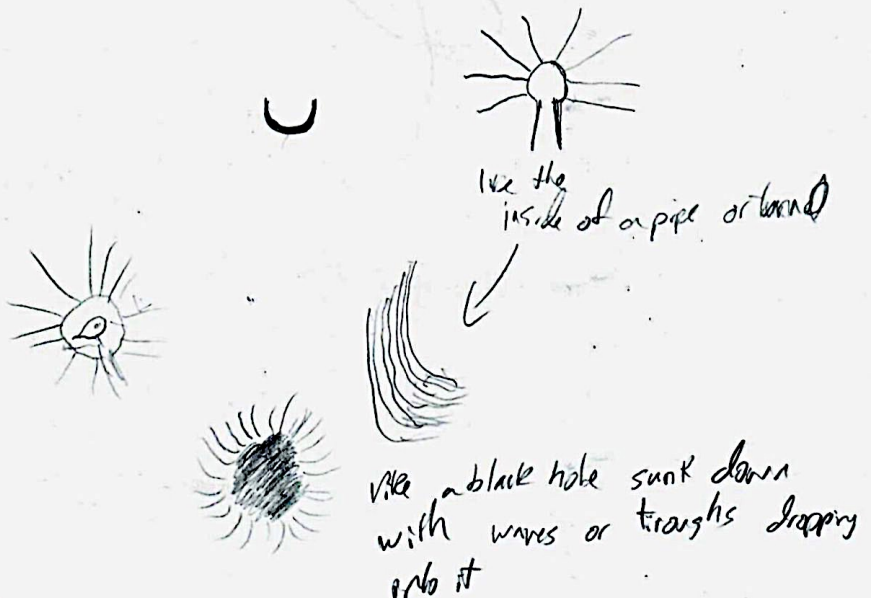 like the
inside of a pipe or tunnel
like a black hole sunk down
with waves or troughs dropping
into it